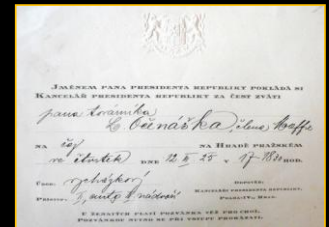 JMÉNEM PANA PRESIDENTA REPUBLIKY POKLÁDÁ SI
KANCELÁŘ PRESIDENTA REPUBLIKY ZA ČEST ZVÁTI
pana továrníka
L. Očenáška, člena Maffie
NA čaj NA HRADĚ PRAŽSKÉM
ve čtvrtek DNE 12 25 v 17 HOD.
ÚBOR: vycházkový ODPOVĚĎ:
KANCELÁŘI PRESIDENTA REPUBLIKY,
PŘÍJEZD: nádvoří PRAHA IV., HRAD.
U ŽENATÝCH PLATÍ POZVÁNKA TÉŽ PRO CHOŤ.
POZVÁNKU NUTNO SE PŘI VSTUPU PROKÁZATI.